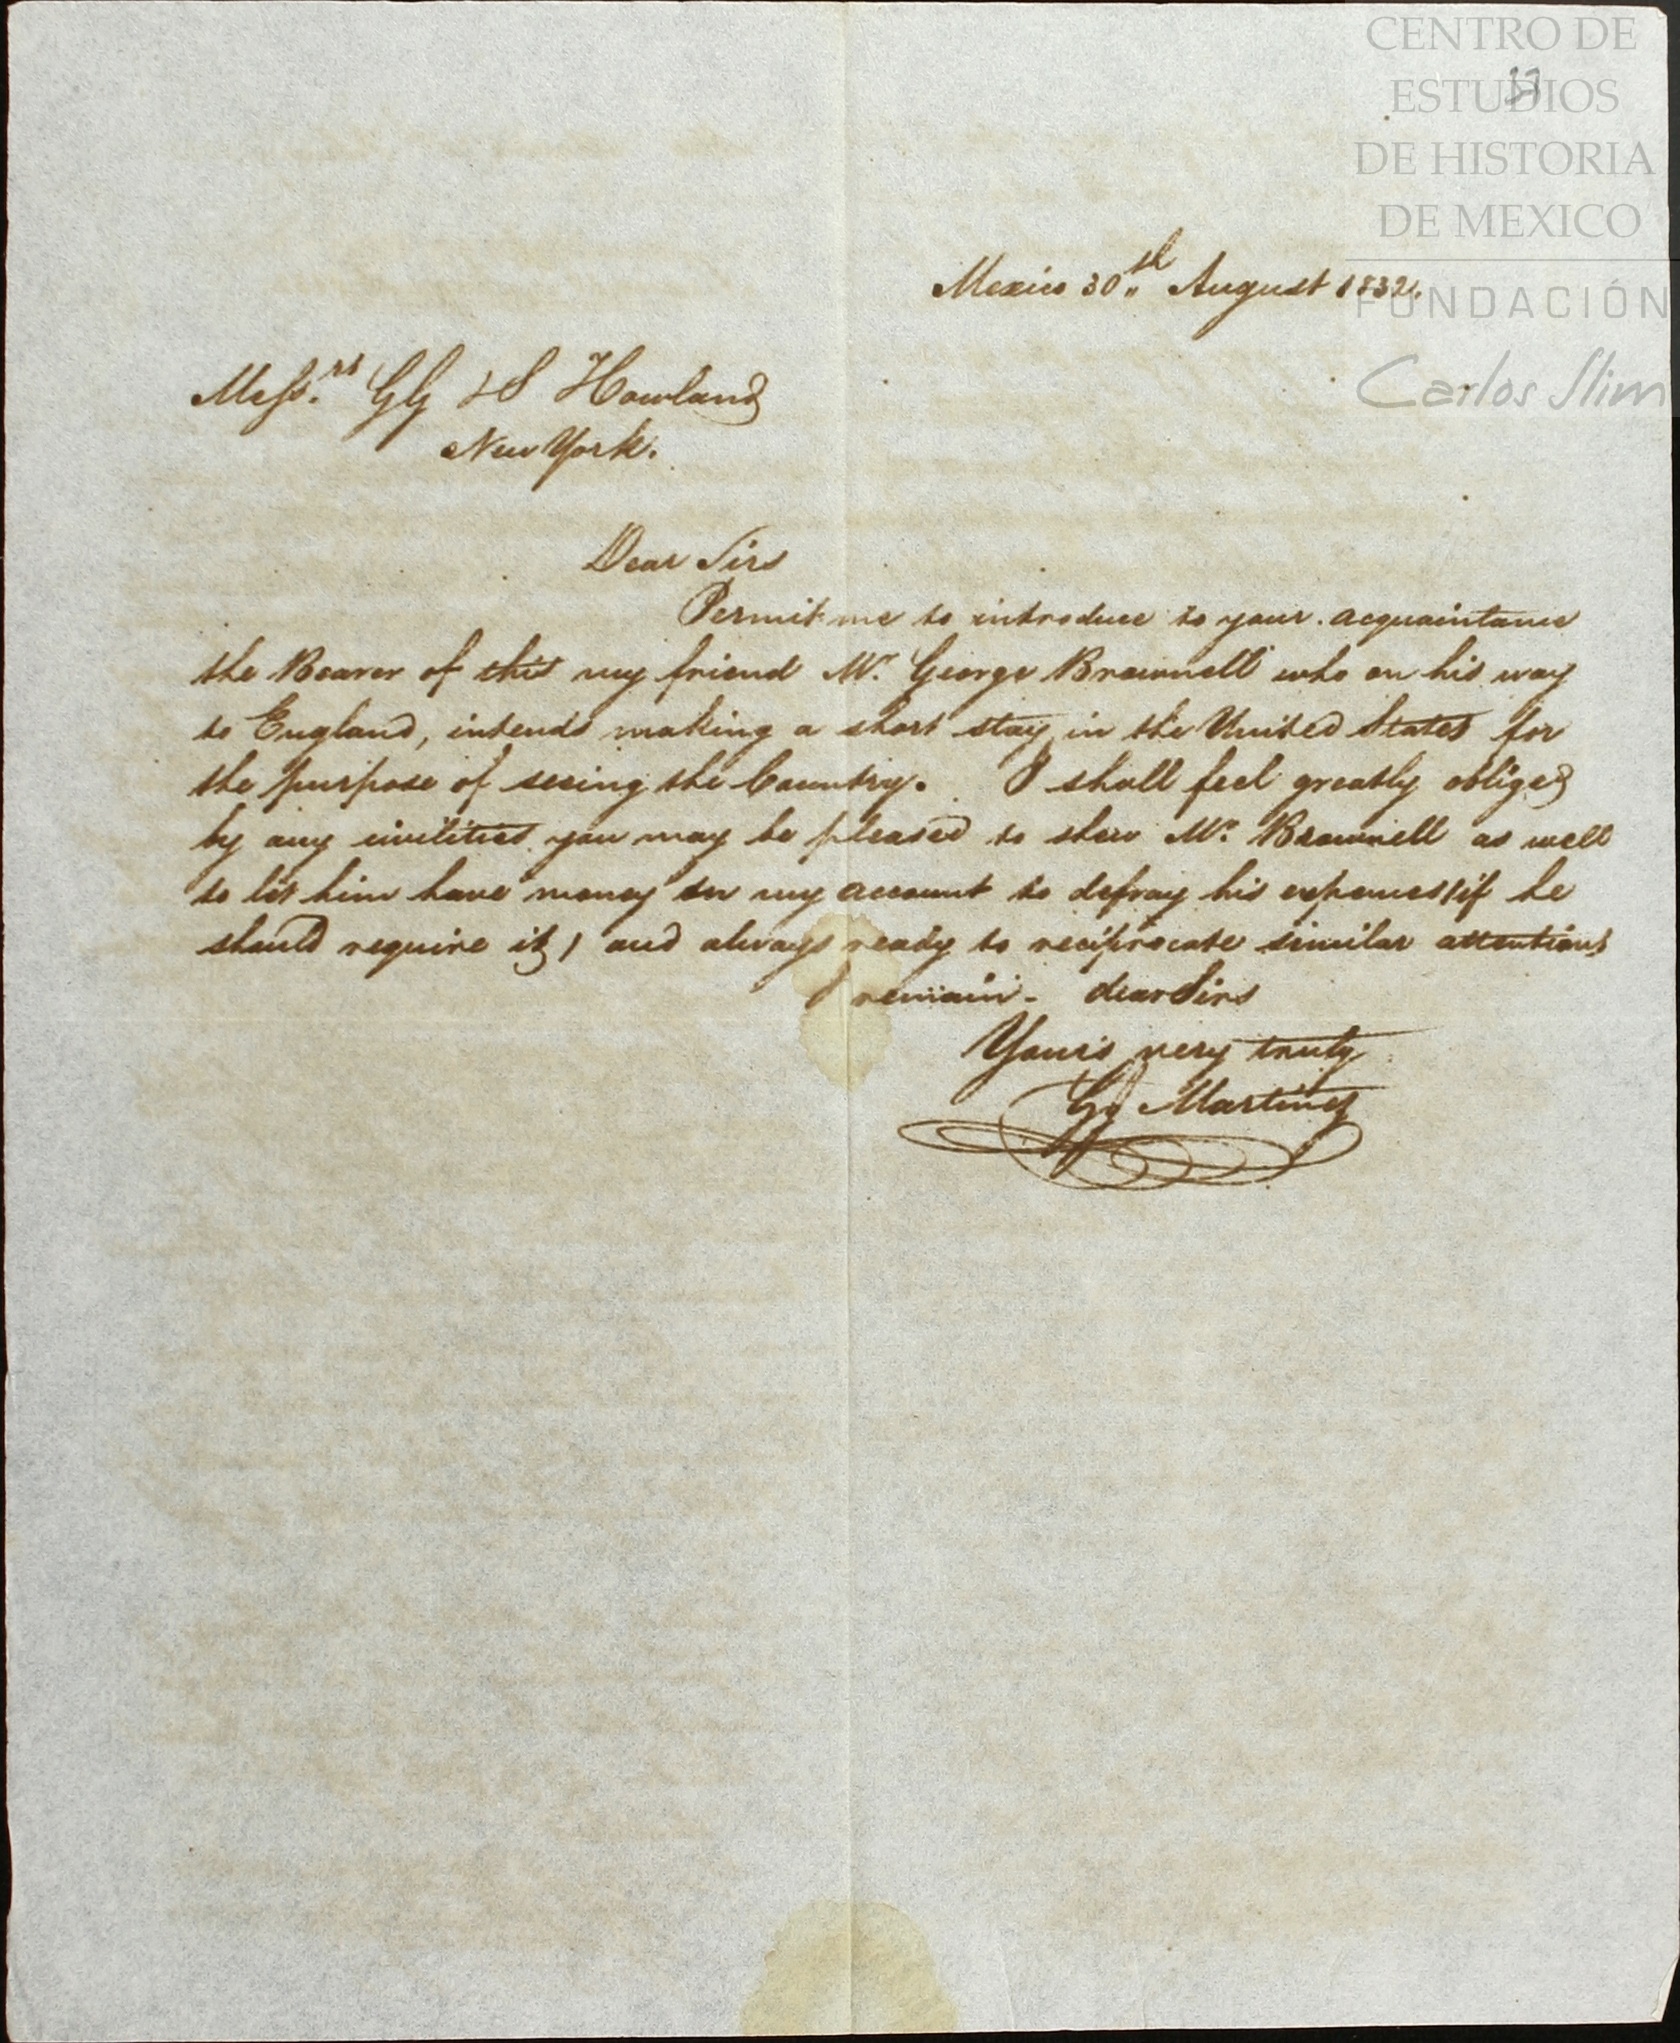 CENTRO DE
ESTUDIOS
DE HISTORIA
DE MEXICO
FUNDACIÓN
Carlos Slim
Mexico 30th August 1832.
Messrs GG & S Howland
New York.
Dear Sirs
Permit me to introduce to your acquaintance
the Bearer of this my friend Mr. George Brownell who on his way
to England, intends making a short stay in the United States for
the purpose of seeing the Country. I shall feel greatly obliged
by any civilities you may be pleased to shew Mr. Brownell as well
to let him have money on my account to defray his expences (if he
should require it) and always ready to reciprocate similar attentions
I remain - dear Sirs
Yours very truly
Martinez